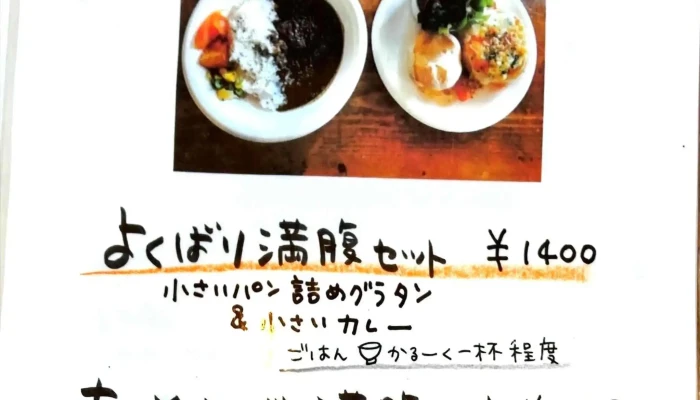 よくばり満腹セット ¥1400
小さいパン詰めグラタン
& 小さいカレー
ごはんかるーく一杯程度